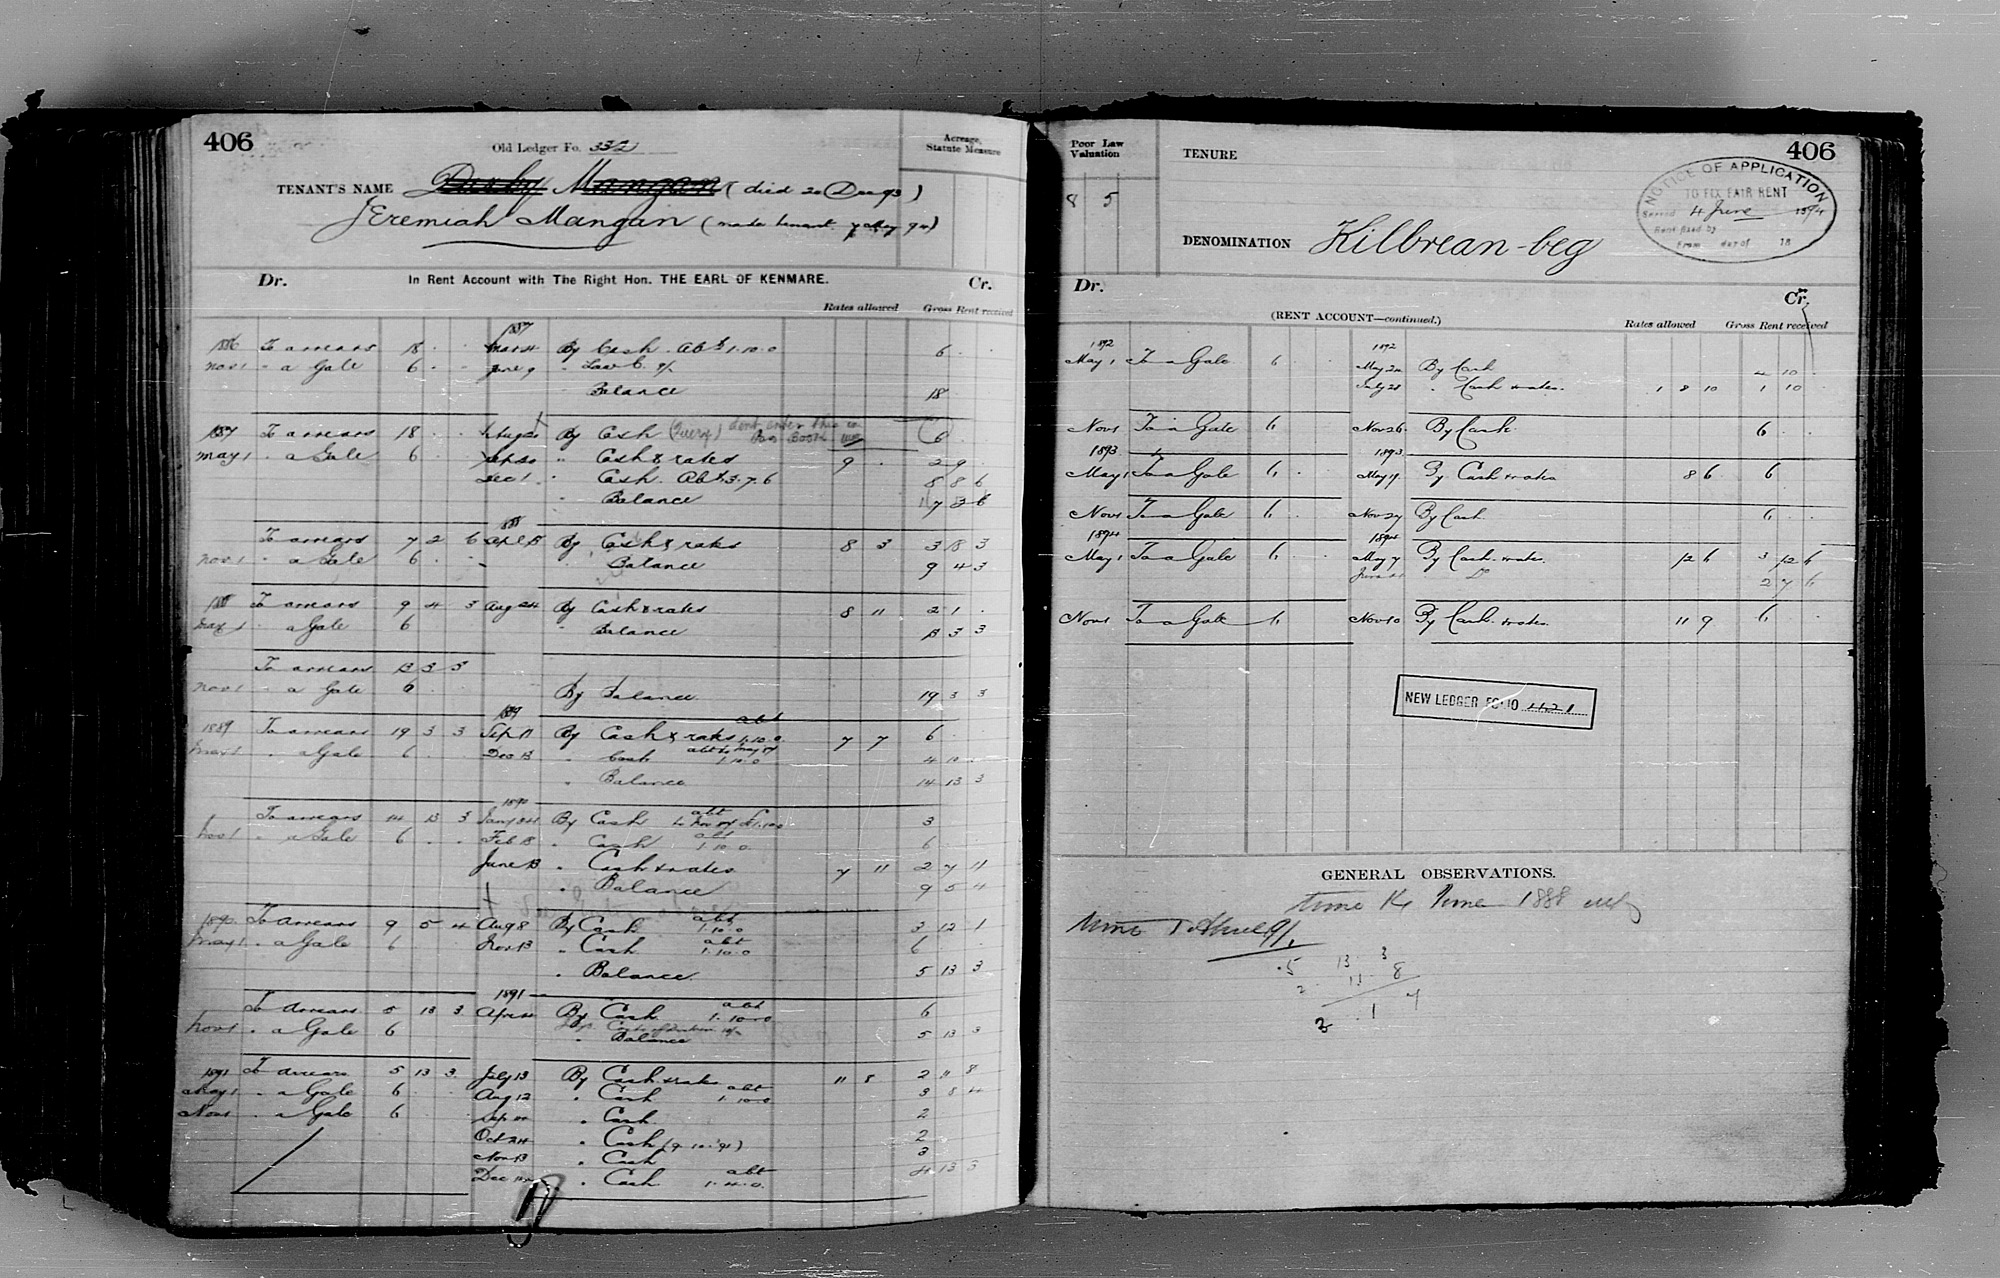 406
Old Ledger Fo. 332
Acreage, Statute Measure
TENANT'S NAME Darby Mangan (died 20 Dec 93)
Jeremiah Mangan (made tenant 7 May 94)
Dr. In Rent Account with The Right Hon. THE EARL OF KENMARE. Cr.
Rates allowed Gross Rent received
1887
1886 To arrears 18 . . Mar 4 By Cash Abt 1.10.0 6 . .
Nov 1 " a Gale 6 . . June 9 " Law C.
Balance 18
1887 To arrears 18 . . By Cash (Query) dont enter this in 6
Pass Book
May 1 " a Gale 6 . . Sep 20 " Cash & rates 9 . 2 9 .
Dec 1 " Cash Abt 3.7.6 8 8 6
" Balance
1888
To arrears 7 2 6 By Cash & rates 8 3 3 18 3
Nov 1 " a Gale 6 . Balance 9 4 3
1888 To arrears 9 4 3 Aug 24 By Cash & rates 8 11 2 1 .
May 1 " a Gale 6 " Balance 13 3 3
To arrears 13 3 3
Nov 1 " a Gale 6 . By Balance 19 3 3
1889
1889 To arrears 19 3 3 Sep 17 By Cash & rates abt 1.10.0 7 7 6 .
May 1 " a Gale 6 . . Dec 13 " Cash abt to May 89 1.10.0 4 10 .
" Balance 14 13 3
1890
To arrears 14 13 3 Jany 24 By Cash abt to Nov 89 £1.10.0 3
Nov 1 " a Gale 6 . . Feb 18 " Cash abt 1.10.0 6
June 13 " Cash & rates 7 11 2 7 11
" Balance 9 5 4
1890 To arrears 9 5 4 Aug 8 By Cash abt 1.10.0 3 12 1
May 1 " a Gale 6 Nov 13 " Cash abt 1.10.0 6
" Balance 5 13 3
1891
To arrears 5 13 3 By Cash abt 1.10.0 6
Nov 1 " a Gale 6
" Balance 5 13 3
1891 To arrears 5 13 3 July 13 By Cash & rates 11 8 2 11 8
May 1 " a Gale 6 . . Aug 12 " Cash abt 1.10.0 3 8 4
Nov 1 " a Gale 6 Sep " Cash 2
Oct 24 " Cash (9.10.91) 2
Nov 13 " Cash 3
Dec " Cash abt 1.4.0 4 13 3
Poor Law Valuation
TENURE
406
8 5
NOTICE OF APPLICATION
TO FIX FAIR RENT
Served 4 June 1894
Rent fixed by
From day of 18
DENOMINATION Kilbrean-beg
Dr. Cr.
(RENT ACCOUNT—continued.)
Rates allowed Gross Rent received
1892 1892
May 1 To a Gale 6 May 24 By Cash 4 10 .
July 28 " Cash & rates 1 8 10 1 10
Nov 1 To a Gale 6 Nov 26 By Cash 6
1893 1893
May 1 To a Gale 6 . May 17 By Cash & rates 8 6 6
Nov 1 To a Gale 6 . Nov 27 By Cash 6 .
1894 1894
May 1 To a Gale 6 . May 7 By Cash & rates 12 6 3 12 6
June Do 2 7 6
Nov 1 To a Gale 6 Nov 10 By Cash & rates 11 9 6
NEW LEDGER FOLIO 421
GENERAL OBSERVATIONS.
time to time 1888
5 13 3
2 11 8
3 1 7